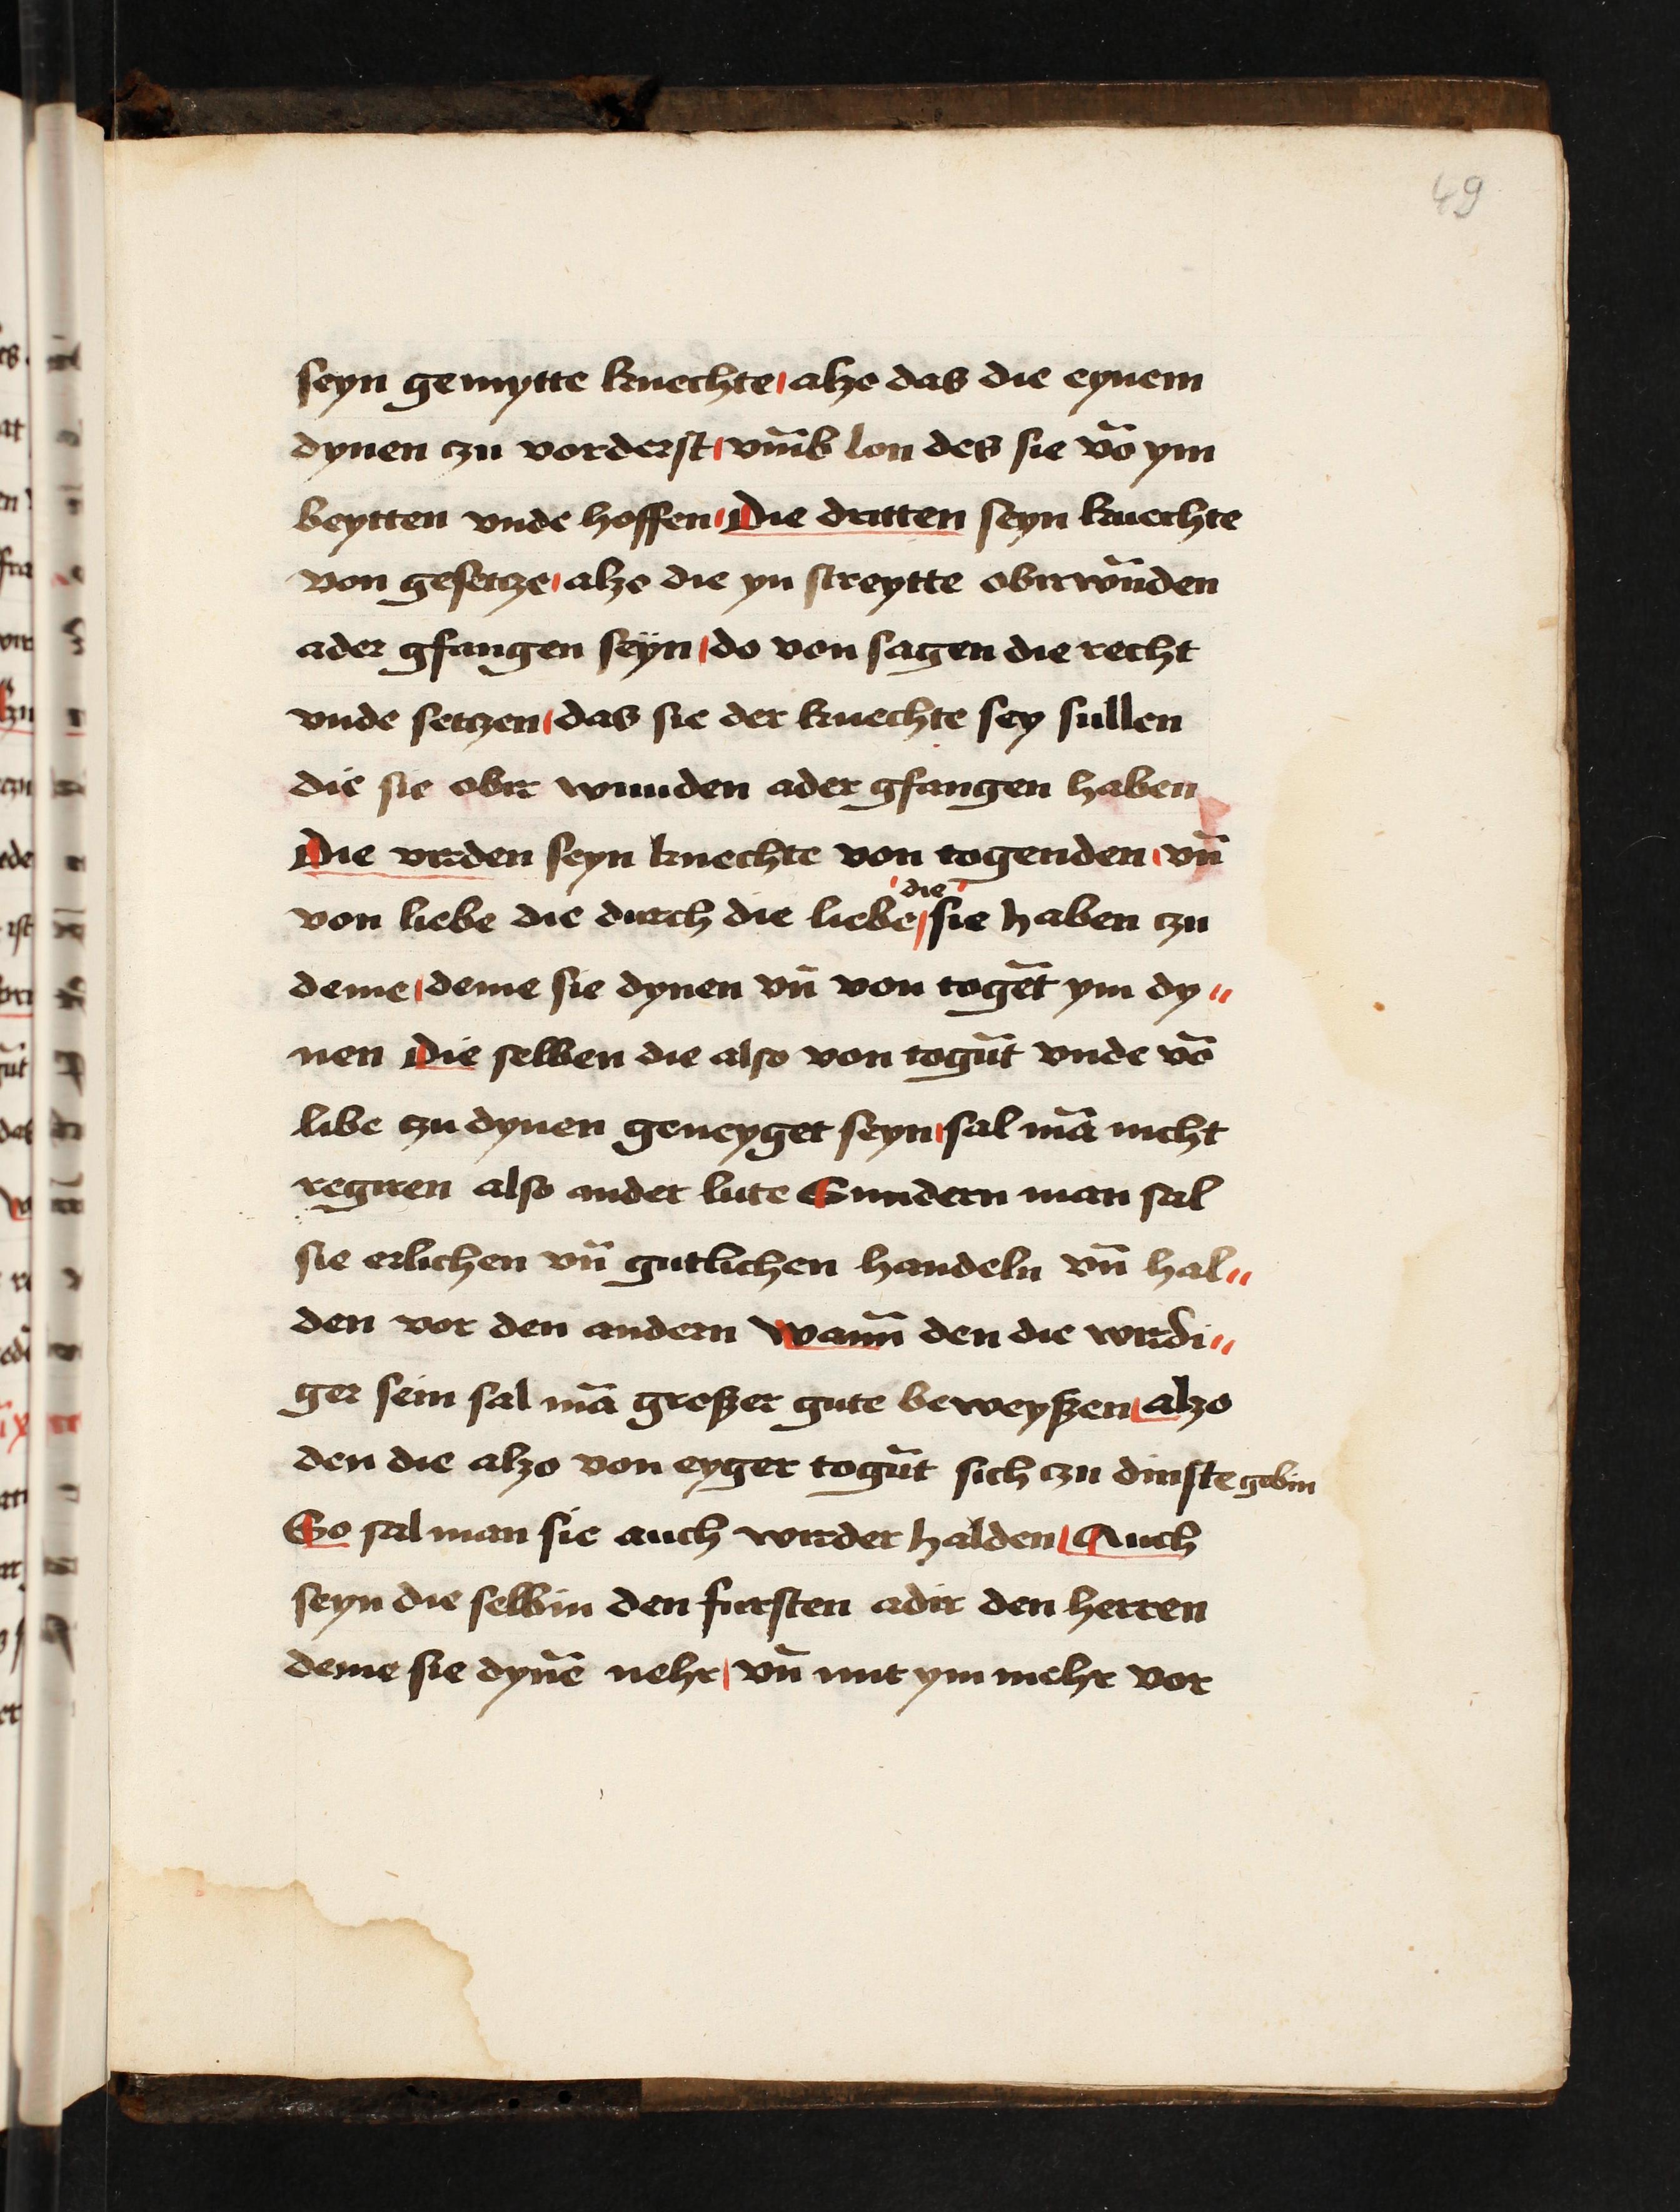 49
seyn gemytte knechte alzo das die eynem
dynen czu vorderst vm̄b lon des sie vō ym
beytten vnde hoffen Die dritten seyn knechte
von gesetcze alzo die yn streytte obirwūden
ader gfangen seÿn do von sagen die recht
vnde setczen das sie der knechte sey sullen
die sie obir wunden ader gfangen haben
Die virden seyn knechte von togenden vn̄
die
von liebe die durch die liebe sie haben czu
deme deme sie dynen vn̄ von togēt ym dy〃
nen Die selben die also von togūt vnde vō
libe czu dynen geneyget seyn sal mā nicht
regiren also ander lute Sundern man sal
sie erlichen vn̄ gutlichen handeln vn̄ hal〃
den vor den andern Wann̄ den die wirdi〃
ger sein sal mā großer gute beweyßen alzo
den die alzo von eyger togūt sich czu dinste gebin
So sal man sie auch wirder halden Auch
seyn die selbin den fursten adir den herren
deme sie dynē nehr vn̄ mit ym mehr vor